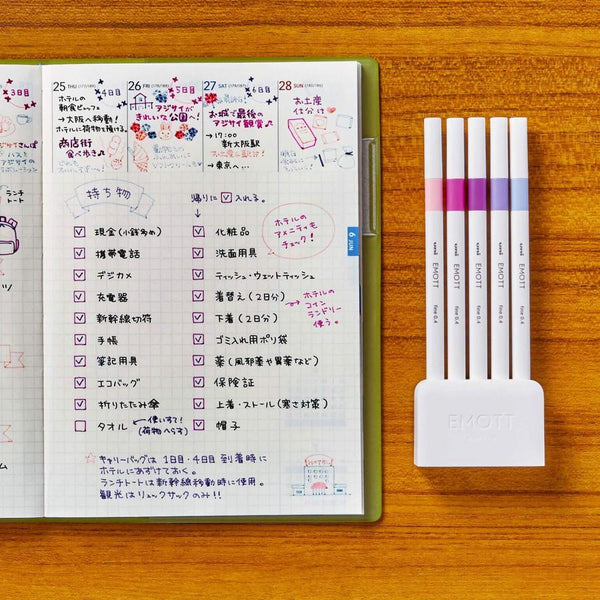 3日目
4日目
25 THU (176/189)
ホテルの
朝食ビュッフェ
→大阪へ移動!
ホテルに荷物を預ける。
商店街
食べ歩き♪
26 FRI (177/188)
5日目
アジサイが
きれいな公園へ!
27 SAT (178/187)
6日目
お城で最後の
アジサイ観賞♪
→17:00
新大阪駅
→東京へ…
28 SUN (179/186)
お土産
仕分け
ランチ
トート
持ち物
現金(小銭多め)
携帯電話
デジカメ
充電器
新幹線切符
手帳
筆記用具
エコバッグ
折りたたみ傘
タオル
使いすて!
(荷物へらす)
帰りに☑入れる。
化粧品
洗面用具
ティッシュ・ウェットティッシュ
着替え(2日分)
下着(2日分)
ゴミ入れ用ポリ袋
薬(風邪薬や胃薬など)
保険証
上着・ストール(寒さ対策)
帽子
ホテルの
アメニティも
チェック!
→ホテルの
コイン
ランドリー
使う。
6 JUN
☆キャリーバッグは1日目・4日目到着時に
ホテルにあずけておく。
ランチトートは新幹線移動時に使用。
観光はリュックサックのみ!!
uni EMOTT fine 0.4
uni EMOTT fine 0.4
uni EMOTT fine 0.4
uni EMOTT fine 0.4
uni EMOTT fine 0.4
EMOTT